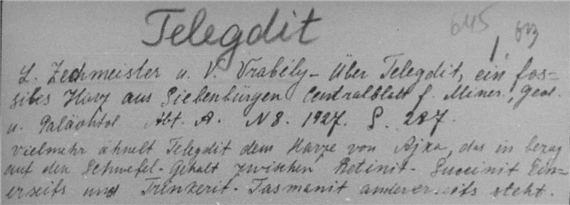 Telegdit
645
L. Zechmeister u. V. Vrabély - Über Telegdit, ein fos-
siles Harz aus Siebenbürgen Centralblatt f. Miner., Geol.
u. Paläontol Abt. A. N 8. 1927. S. 287.
vielmehr ähnelt Telegdit dem Harze von Ajka, das in bezug
auf den Schwefel-Gehalt zwischen Retinit - Succinit Einer-
seits und Trinkerit - Tasmanit anderer-seits steht.